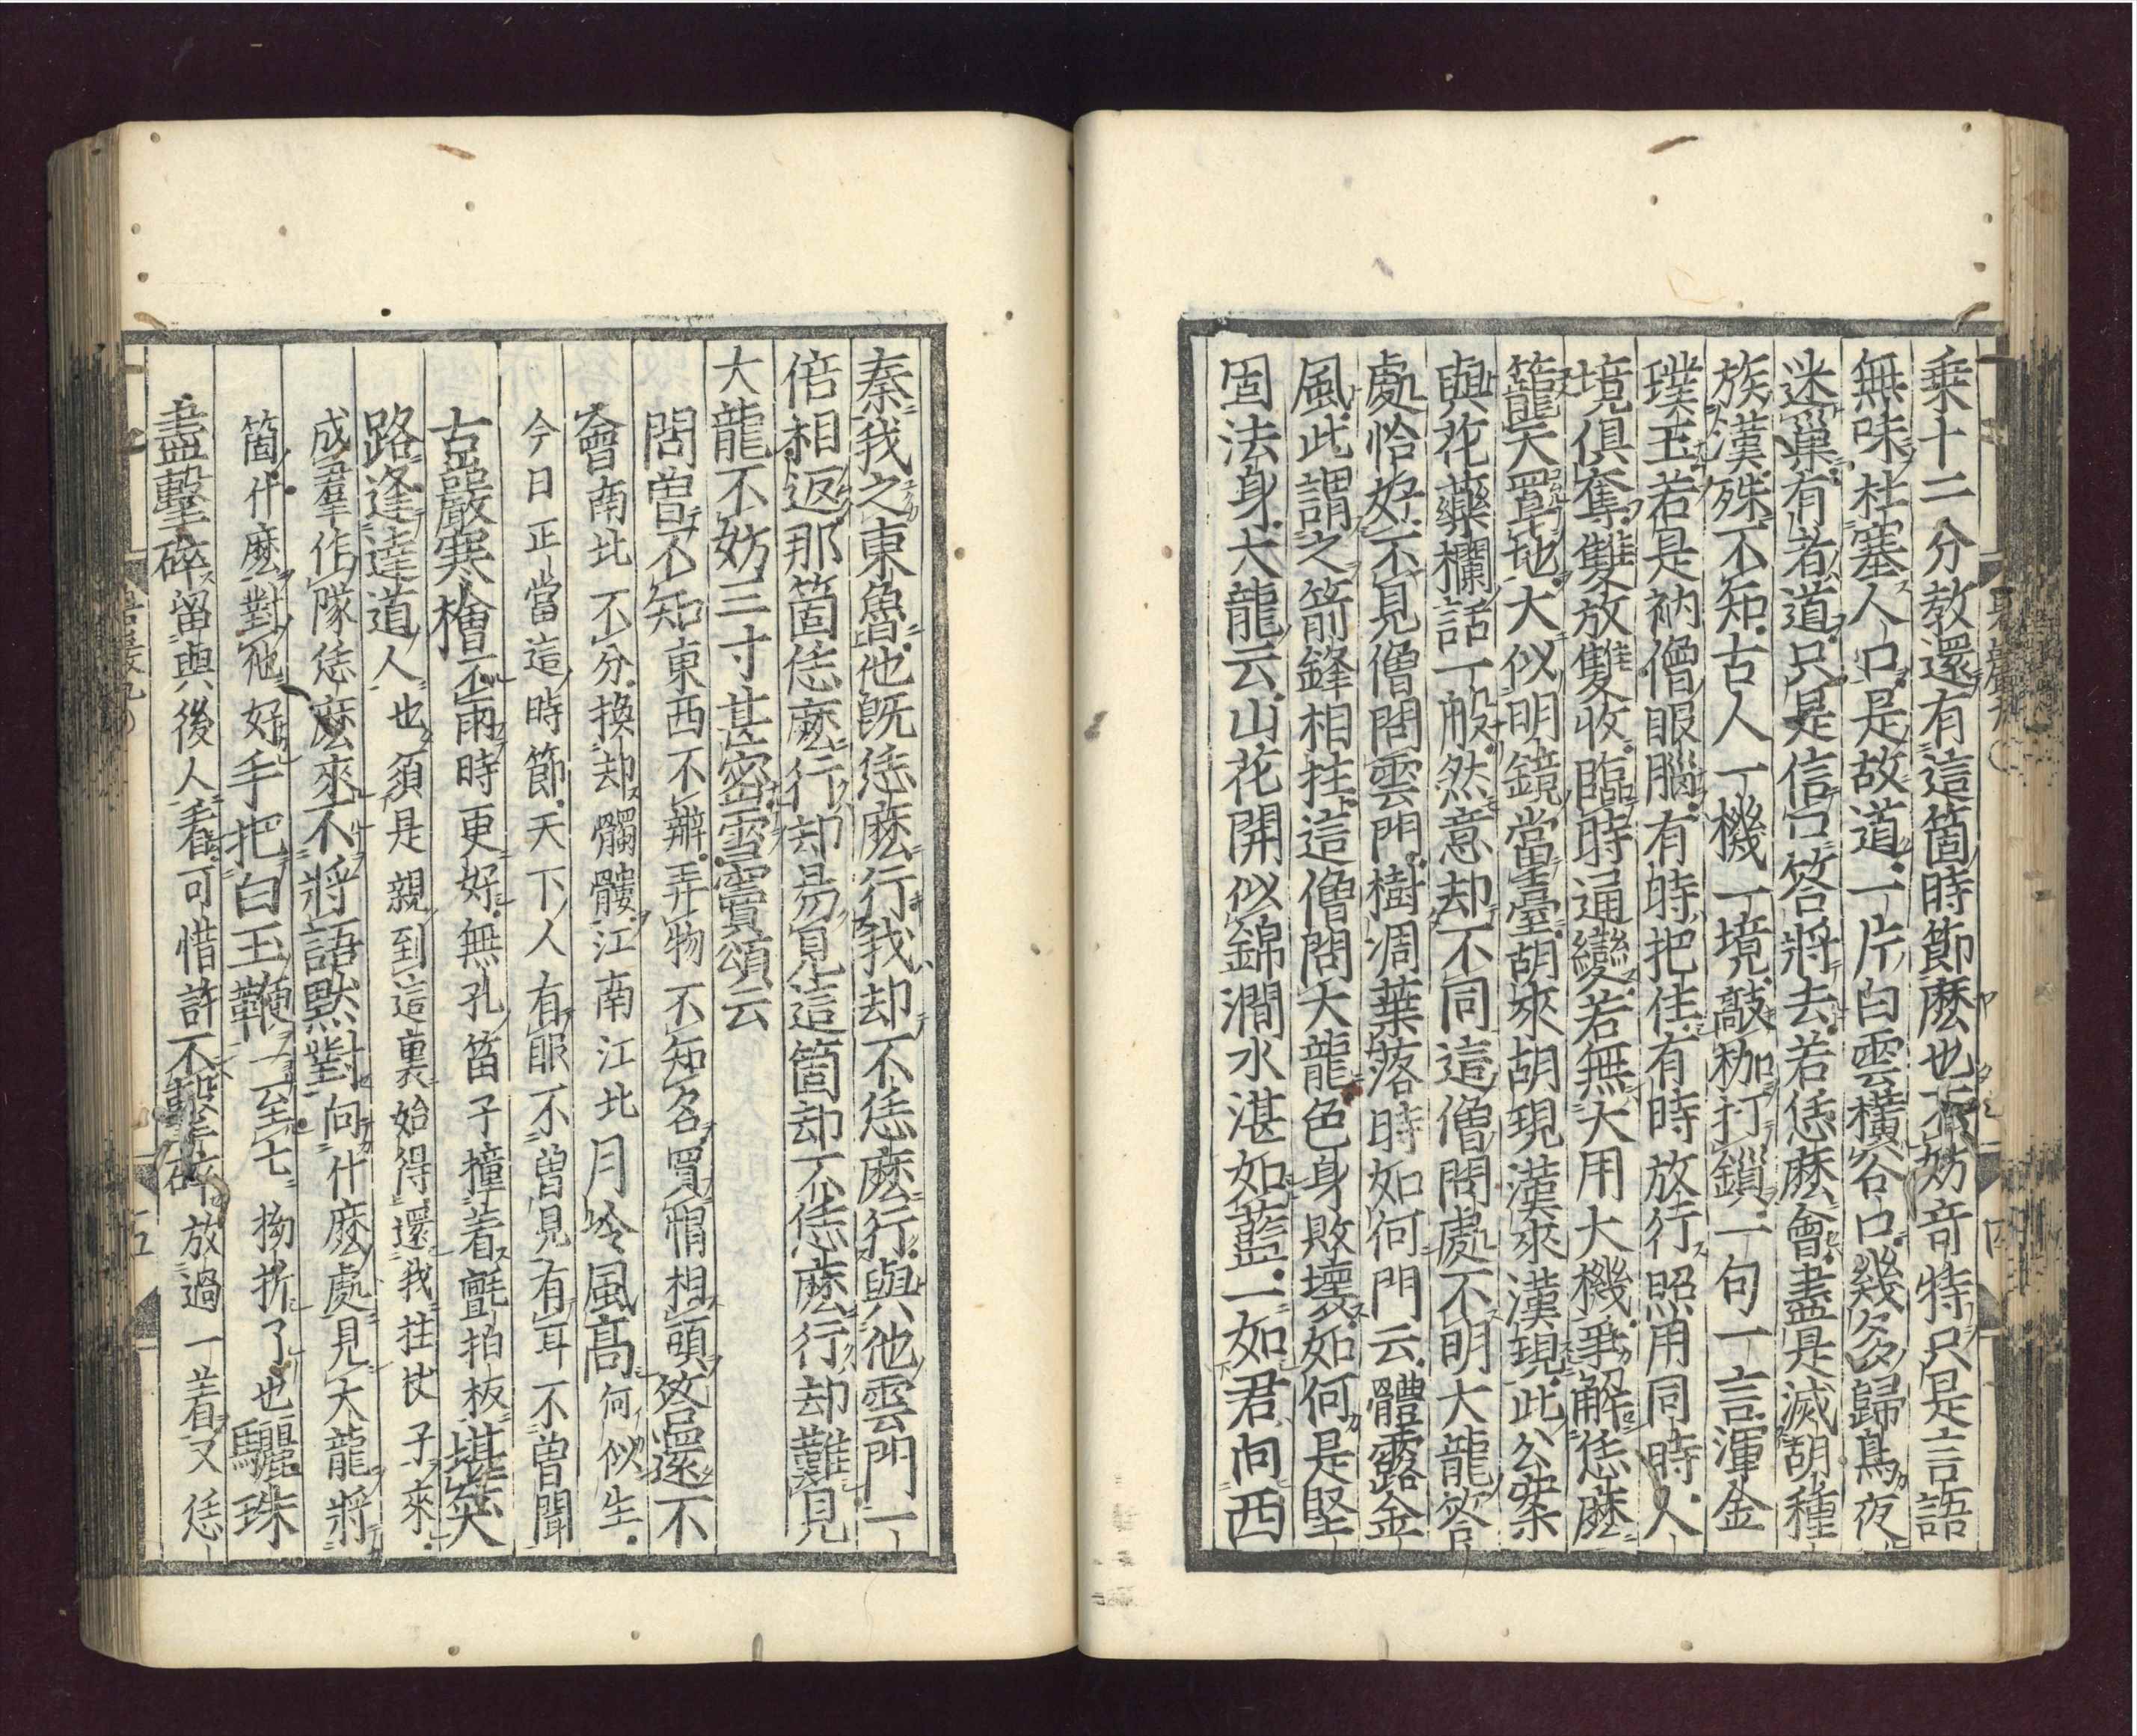 乗十二分教還有這箇時節麽也不妨竒特只是言語
無味杜塞人口是故道一片白雲横谷口幾多歸鳥夜
迷巢有者道只是信口答將去若恁麽會盡是滅胡種
族漢殊不知古人一機一境敲枷打鎖一句一言渾金
璞玉若是衲僧眼腦有時把住有時放行照用同時人
境俱奪雙放雙收臨時通變若無大用大機爭解恁麽
籠天罩地大似明鏡當臺胡來胡現漢來漢現此公案
與花藥欄話一般然意却不同這僧問處不明大龍答
處恰好不見僧問雲門樹凋葉落時如何門云體露金
風此謂之箭鋒相拄這僧問大龍色身敗壞如何是堅
固法身大龍云山花開似錦澗水湛如藍一如君向西
秦我之東魯他既恁麽行我却不恁麽行與他雲門一
倍相返那箇恁麽行却易見這箇却不恁麽行却難見
大龍不妨三寸甚密雪竇頌云
問曽不知東西不辨弄物不知名買帽相頭答還不
會南北不分換却髑髏江南江北月冷風高何似生
今日正當這時節天下人有眼不曽見有耳不曽聞
古巖寒檜不雨時更好無孔笛子撞着氈拍板堪笑
路逢達道人也須是親到這裏始得還我拄杖子來
成羣作隊恁麽來不將語默對向什麽處見大龍將
箇什麽對他好手把白玉鞭一至七拗折了也驪珠
盡擊碎留與後人看可惜許不擊碎放過一着又恁
四
五